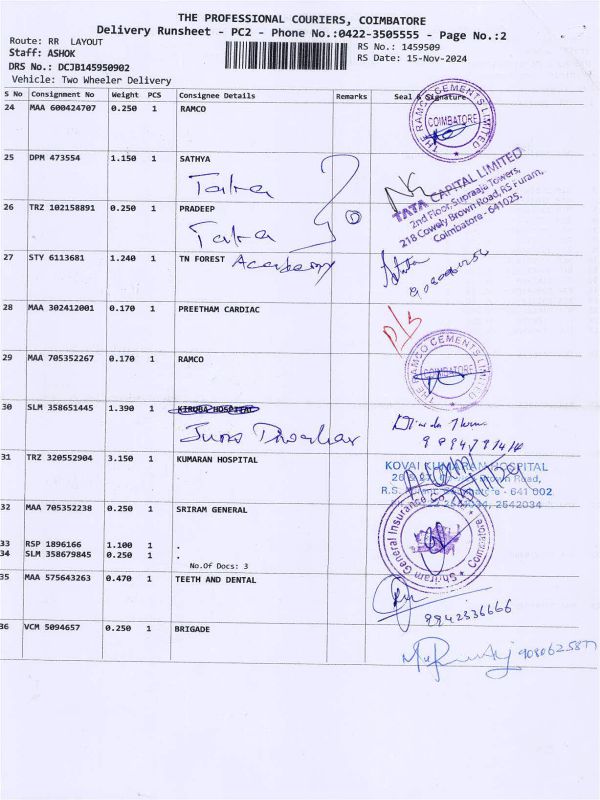 THE PROFESSIONAL COURIERS, COIMBATORE
Delivery Runsheet - PC2 - Phone No.:0422-3505555 - Page No.:2
Route: RR LAYOUT
RS No.: 1459509
Staff: ASHOK
RS Date: 15-Nov-2024
DRS No.: DCJB145950902
Vehicle: Two Wheeler Delivery
S No Consignment No Weight PCS Consignee Details Remarks Seal & Signature
24 MAA 600424707 0.250 1 RAMCO
THE RAMCO CEMENTS LIMITED
COIMBATORE
25 DPM 473554 1.150 1 SATHYA
Tata
TATA CAPITAL LIMITED
2nd Floor, Supraaja Towers,
218 Cowely Brown Road, RS Puram,
Coimbatore - 641025.
26 TRZ 102158891 0.250 1 PRADEEP
Tata
27 STY 6113681 1.240 1 TN FOREST Academy
28 MAA 302412001 0.170 1 PREETHAM CARDIAC
D/B
29 MAA 705352267 0.170 1 RAMCO
THE RAMCO CEMENTS LIMITED
COIMBATORE
30 SLM 358651445 1.390 1 KIRUBA HOSPITAL
31 TRZ 320552904 3.150 1 KUMARAN HOSPITAL
KOVAI KUMARAN HOSPITAL
Road,
641 002
2542034
32 MAA 705352238 0.250 1 SRIRAM GENERAL
Shriram General Insurance Co.
Coimbatore
33 RSP 1896166 1.100 1 .
34 SLM 358679845 0.250 1 .
No.Of Docs: 3
35 MAA 575643263 0.470 1 TEETH AND DENTAL
9942336666
36 VCM 5094657 0.250 1 BRIGADE